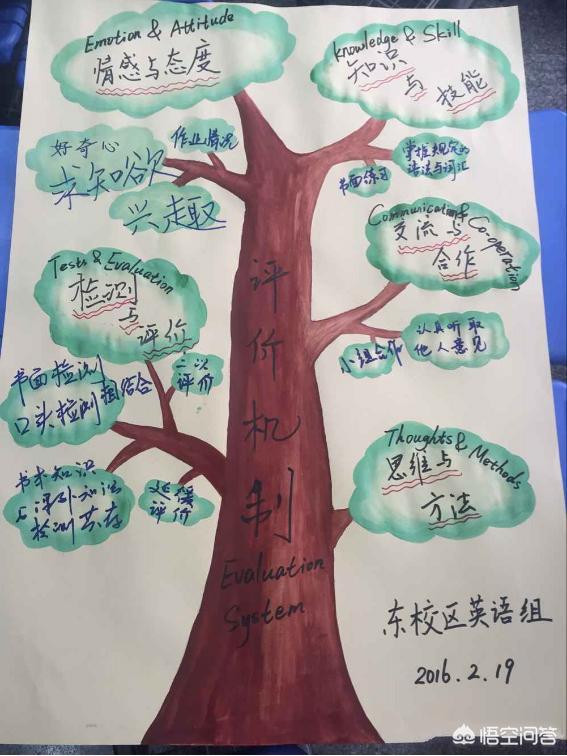 Emotion & Attitude
情感与态度
好奇心
求知欲
作业情况
兴趣
Knowledge & Skill
知识
与
技能
书面练习
掌握规定的
语法与词汇
Communication & Co-operation
交流与
合作
小组合作
认真听取
他人意见
Tests & Evaluation
检测
与
评价
书面检测
口头检测相结合
二次
评价
书本知识
与课外知识
检测共存
延缓
评价
Thoughts & Methods
思维与
方法
评价机制
Evaluation
System
东校区英语组
2016.2.19
悟空问答